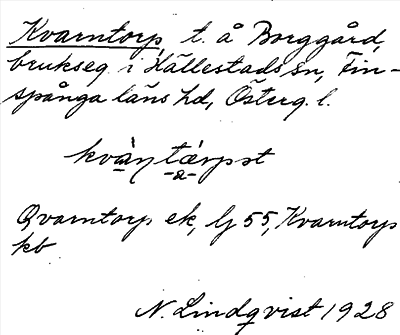 Kvarntorp, t. å Borggård,
brukseg. i Hällestads sn, Fin-
spånga läns hd, Österg. l.
Qvarntorp ek, lj 55, Kvarntorp
kb
N. Lindqvist 1928